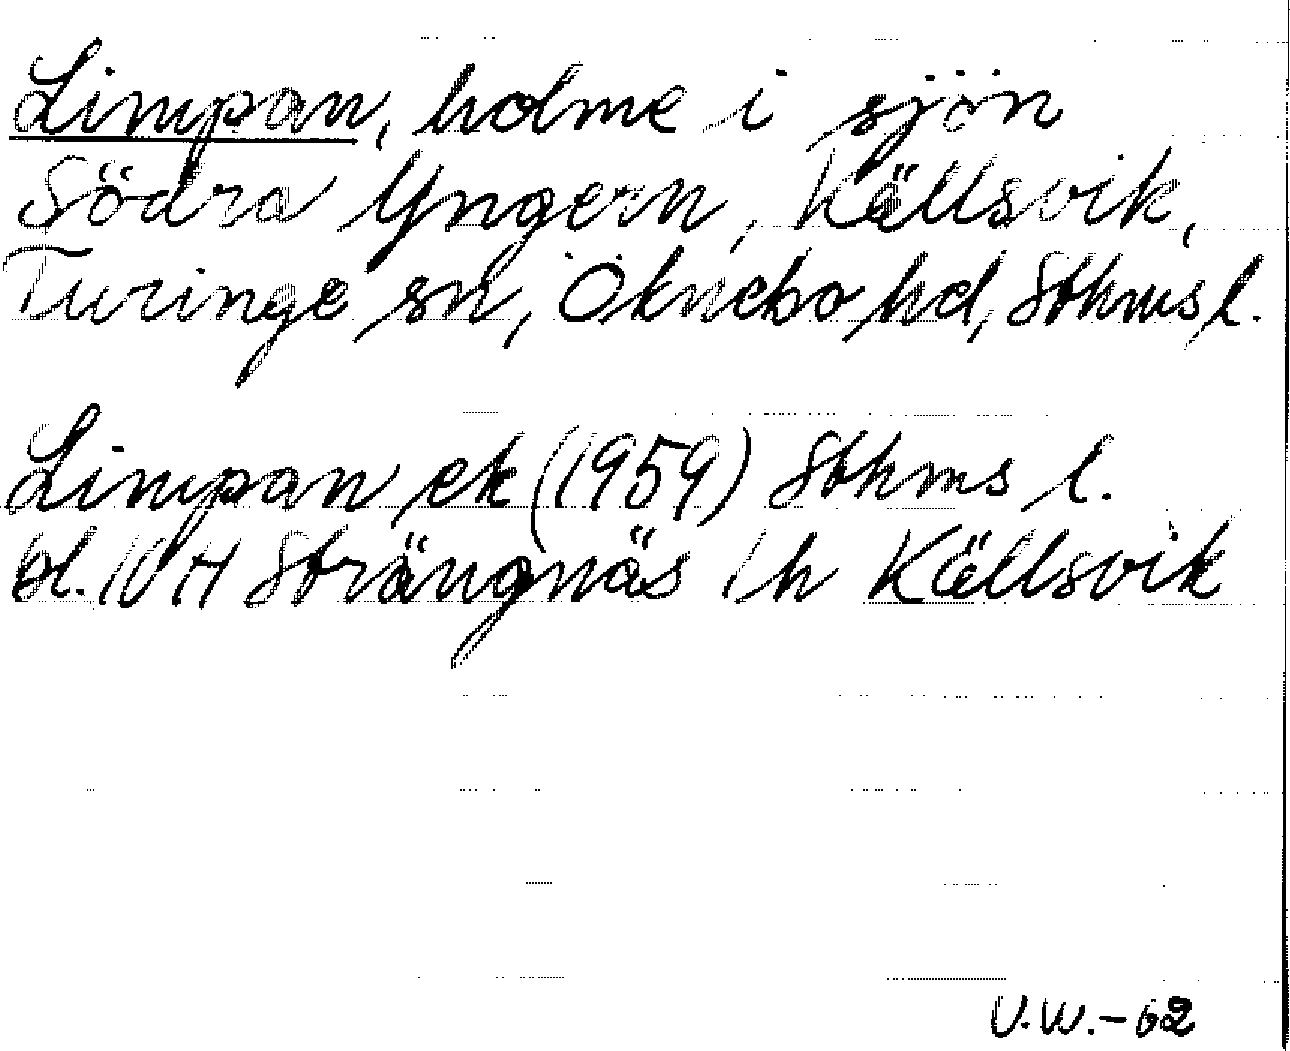 Limpan, holme i sjön
Södra Yngern, Källsvik,
Turinge sn, Öknebo hd, Sthms l.
Limpan ek (1959) Sthms l.
bl. 10 H Strängnäs 1 h Källsvik
V.W.-62